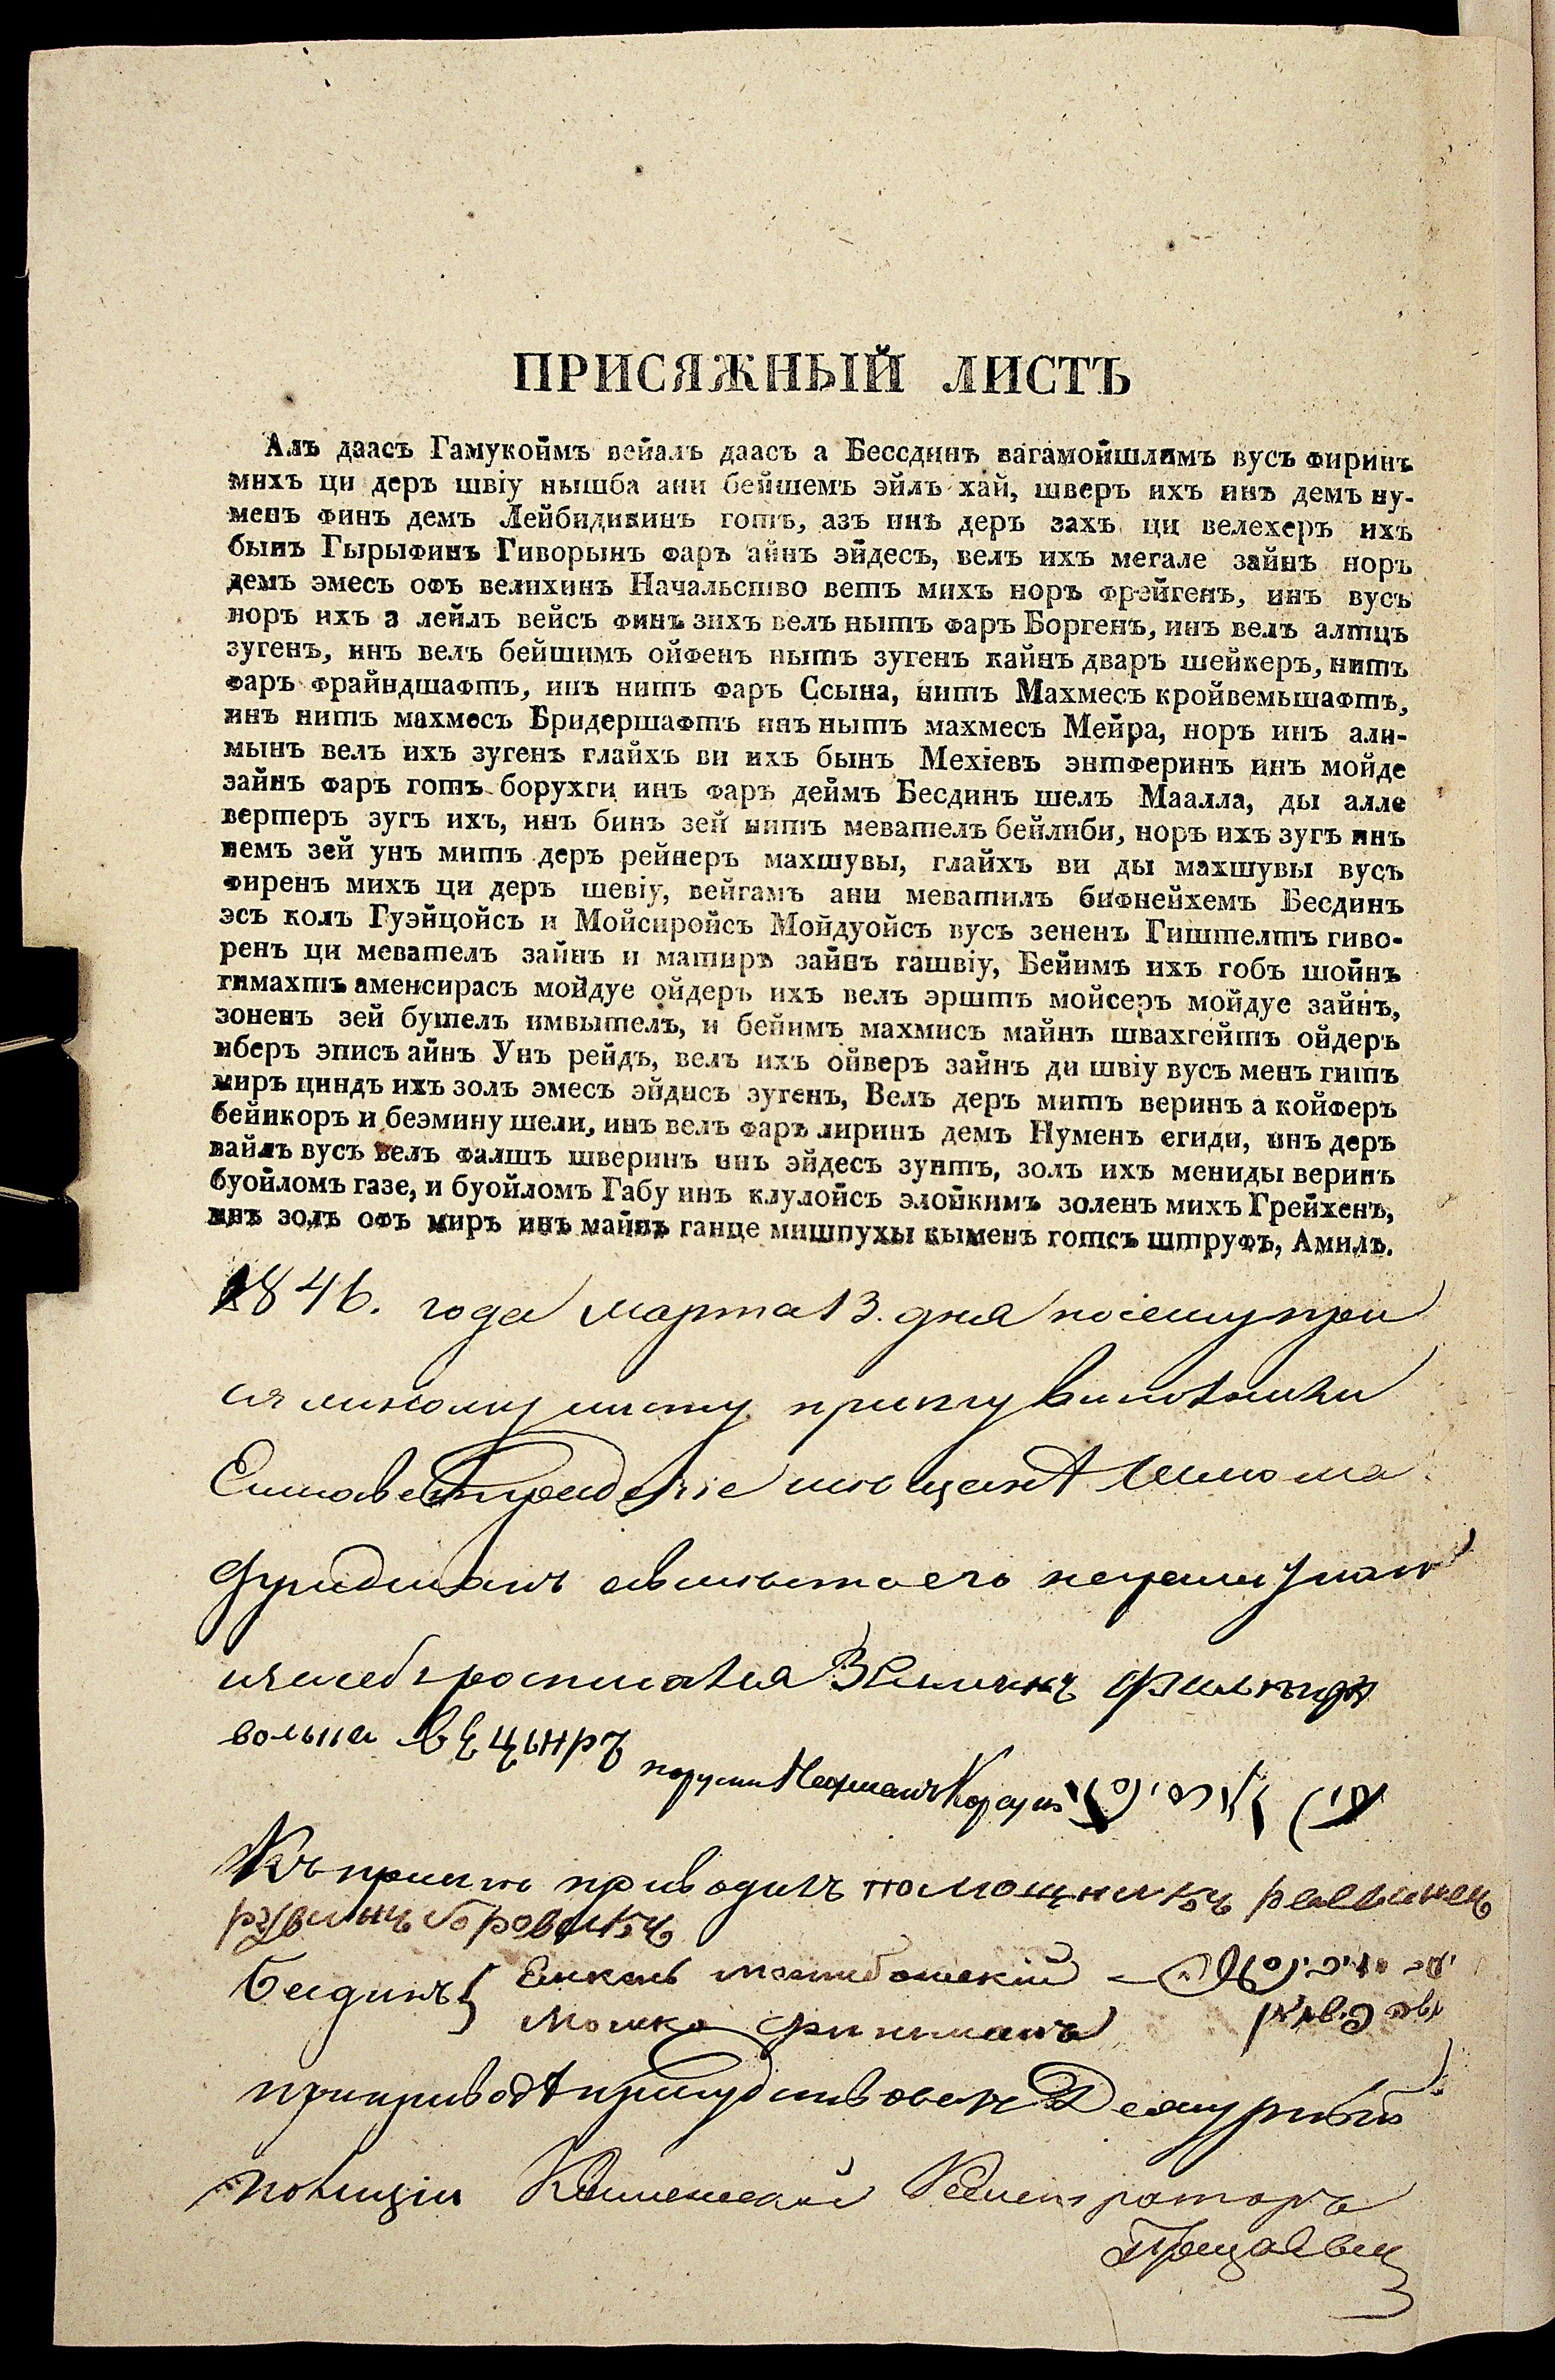 ПРИСЯЖНЫЙ ЛИСТЪ
Алъ даасъ Гамукоймъ вейалъ даасъ а Бессдинъ вагамойшлимъ вусъ фиринъ
михъ ци деръ швіу нышба ани бейшемъ эйлъ хай, шверъ ихъ инъ демъ ну-
менъ финъ демъ Лейбидикинъ готъ, азъ инъ деръ захъ ци велехеръ ихъ
бынъ Гырыфинъ Гиворынъ фаръ айнъ эйдесъ, велъ ихъ мегале зайнъ норъ
демъ эмесъ офъ велихинъ Начальство ветъ михъ норъ фрейгенъ, инъ вусъ
норъ ихъ а лейлъ вейсъ финъ зихъ велъ нытъ фаръ Боргенъ, инъ велъ алтцъ
зугенъ, инъ велъ бейшимъ ойфенъ нытъ зугенъ кайнъ дваръ шейкеръ, нитъ
фаръ фрайндшафтъ, инъ нитъ фаръ Ссына, нитъ Махмесъ кройвемьшафтъ,
инъ нитъ махмесъ Бридершафтъ инъ нытъ махмесъ Мейра, норъ инъ али-
мынъ велъ ихъ зугенъ глайхъ ви ихъ бынъ Мехіевъ энтферинъ инъ мойде
зайнъ фаръ готъ борухги инъ фаръ деймъ Бесдинъ шелъ Маалла, ды алле
вертеръ зугъ ихъ, инъ бинъ зей нитъ мевателъ бейлиби, норъ ихъ зугъ инъ
немъ зей унъ митъ деръ рейнеръ махшувы, глайхъ ви ды махшувы вусъ
фиренъ михъ ци деръ шевіу, вейгамъ ани меватилъ бифнейхемъ Бесдинъ
эсъ колъ Гуэйцойсъ и Мойсиройсъ Мойдуойсъ вусъ зененъ Гиштелтъ гиво-
ренъ ци мевателъ зайнъ и матиръ зайнъ гашвіу, Бейимъ ихъ гобъ шойнъ
гимахтъ аменсирасъ мойдуе ойдеръ ихъ велъ эрштъ мойсеръ мойдуе зайнъ,
зоненъ зей бутелъ имвытелъ, и бейимъ махмисъ майнъ швахгейтъ ойдеръ
иберъ эписъ айнъ Унъ рейдъ, велъ ихъ ойверъ зайнъ ди швіу вусъ менъ гитъ
миръ циндъ ихъ золъ эмесъ эйдисъ зугенъ, Велъ деръ митъ веринъ а койферъ
бейикоръ и беэмину шели, инъ велъ фаръ лиринъ демъ Нуменъ егиди, инъ деръ
вайлъ вусъ велъ фалшъ шверинъ инъ эйдесъ зунтъ, золъ ихъ мениды веринъ
буойломъ газе, и буойломъ Габу инъ клулойсъ элойкимъ золенъ михъ Грейхенъ,
инъ золъ офъ миръ инъ майнъ ганце мишпухы кыменъ готсъ штруфъ, Аминъ.
1846. года марта 13. дня по сему при
сяжному листу присягу выполнили
Елисаветградскіе мѣщане
Фридманъ а вместо его
росписался
вольна
Нахманъ
Къ присяге приводилъ помощникъ раввина
рувинъ боровикъ
Бесдинъ { Янкель межибожскій
Мошко Финкманъ
при приводѣ присудствовалъ Дежурный
полиціи Колежскій Регистраторъ